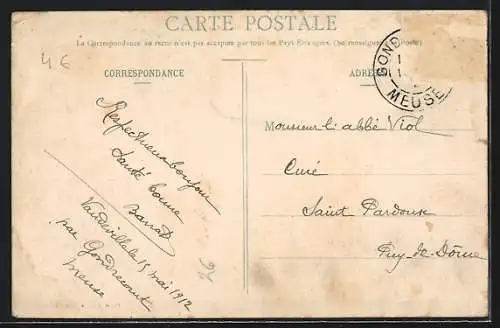 4 €
CARTE POSTALE
La Correspondance au recto n'est pas acceptée par tous les Pays Étrangers. (Se renseigner à la Poste)
CORRESPONDANCE
GOND
MEUSE
Respectueux bonjour
Santé bonne
Vaudeville le 15 mai 1912
par Gondrecourt
Meuse
Monsieur l'abbé Viol
Curé
Saint Pardoux
Puy-de-Dôme